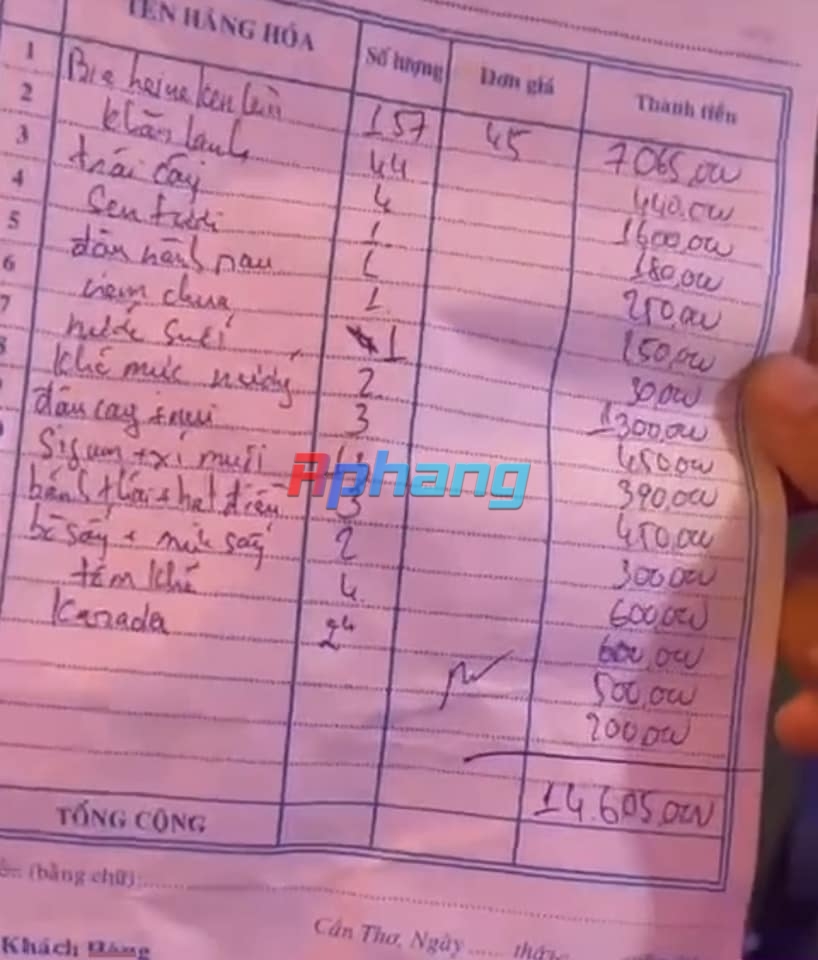 TÊN HÀNG HÓA Số lượng Đơn giá Thành tiền
1 Bia heineken lùn 157 45 7065,000
2 khăn lạnh 44 440,000
3 trái cây 4 1600,000
4 Sen tươi 1 180,000
5 1 250,000
6 nem chua 1 150,000
7 nước suối 1 30,000
8 khô mực nướng 2 1300,000
đậu cay + nui 3 450,000
+ xí muối 390,000
bánh + hạt điều 3 450,000
bò sấy + mực sấy 2 300,000
tôm khô 4 600,000
Kanada 24 600,000
500,000
200,000
14.605,000
TỔNG CỘNG
(bằng chữ)
Cần Thơ, Ngày
Khách Hàng
Aphang